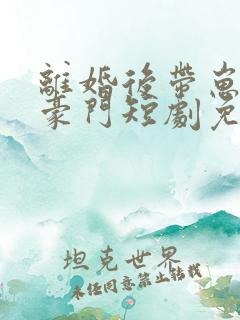 離婚後帶崽
豪門短劇免
坦克世界
未經同意禁止轉載